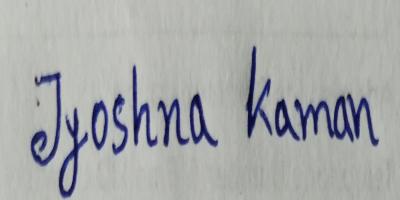 Jyoshna Kaman